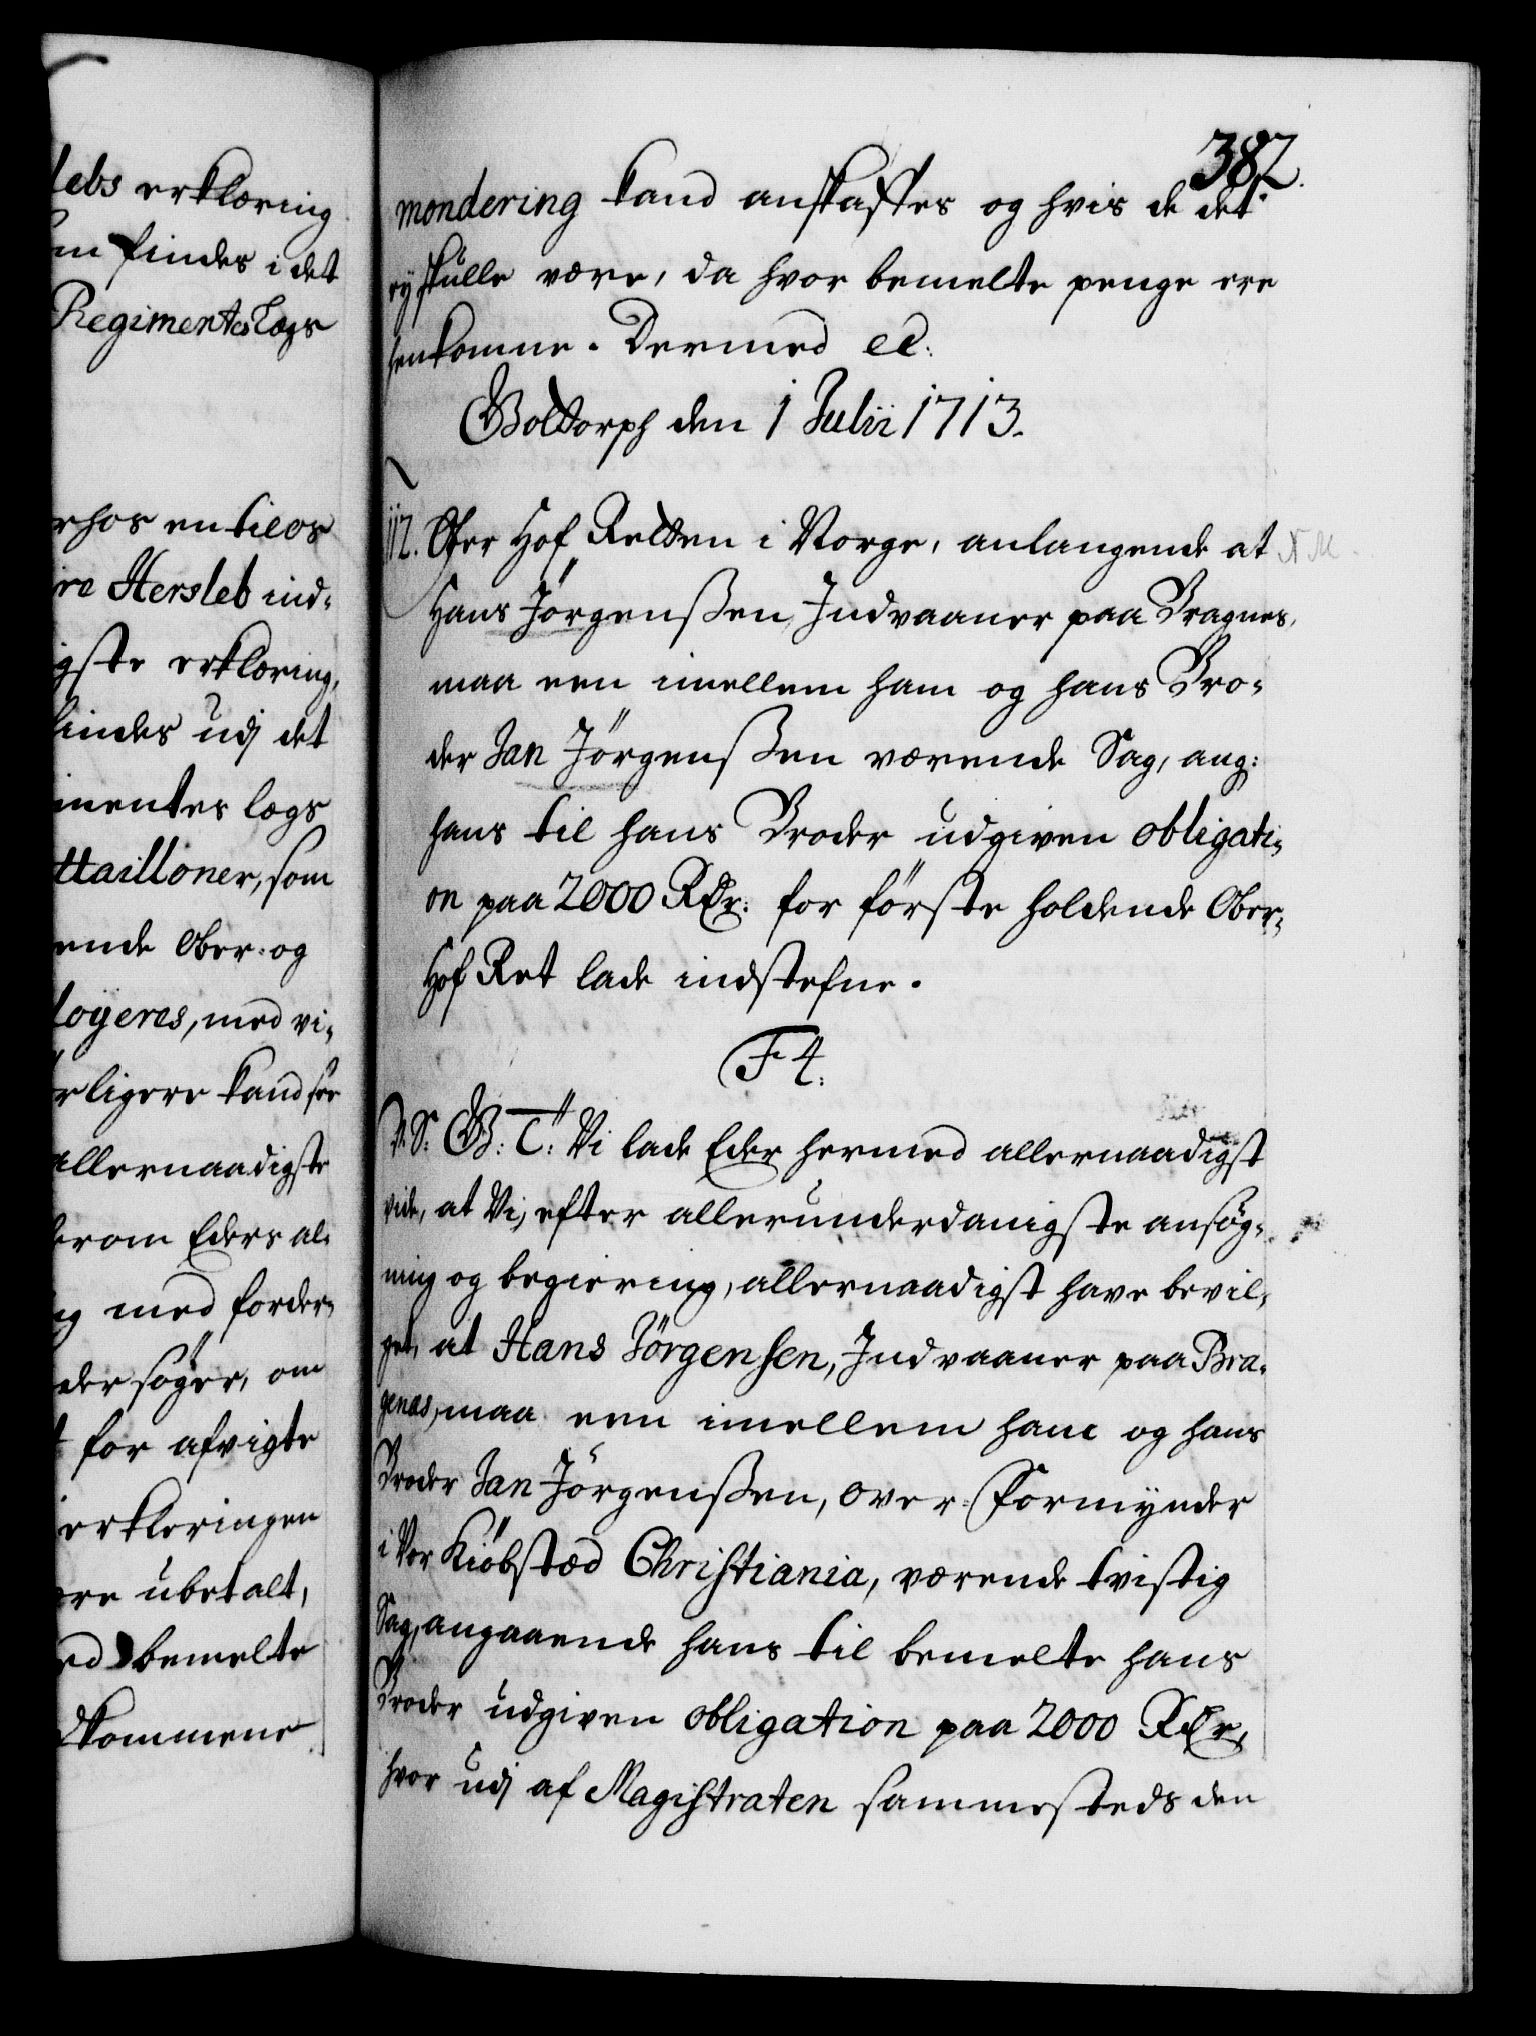 lebs erklæring
m findes i det
Regimentes Lægs
rhos en til os
re Hersleb ind-
igste erklæring,
findes udj det
imentes lægs
ttailloner, som
ende Ober- og
loyeres, med vi-
rligere kand see
allernaadigste
rom Eders al-
g med forder-
dersøger, om
t for afvigte
erkleringen
re ubetalt,
ed bemelte
dkommene
382.
mondering kand anskaffes og hvis de det
ej skulle være, da hvor bemelte penge ere
henkomne. Dermed etc.
Gottorph den 1 Julii 1713.
112. Ofver Hof Retten i Norge, anlangende at
Hans Jörgenßen, Indvaaner paa Bragnes,
maa een imellem ham og hans Bro-
der Jan Jörgenßen værende Sag, ang:
hans til hans Broder udgiven obligati-
on paa 2000 Rdr. for förste holdende Ober-
Hof Ret lade indstefne.
F 4.
V. S. G. T. Vi lade Eder hermed allernaadigst
vide, at Vi, efter allerunderdanigste ansøg-
ning og begiering, allernaadigst have bevil-
get, at Hans Jörgensen, Indvaaner paa Bra-
genæs, maa een imellem ham og hans
Broder Jan Jörgenßen, over-Formynder
i Vor Kiöbstæd Christiania, værende tvistig
Sag, angaaende hans til bemelte hans
Broder udgiven obligation paa 2000 Rdr,
hvor udj af Magistraten sammesteds den